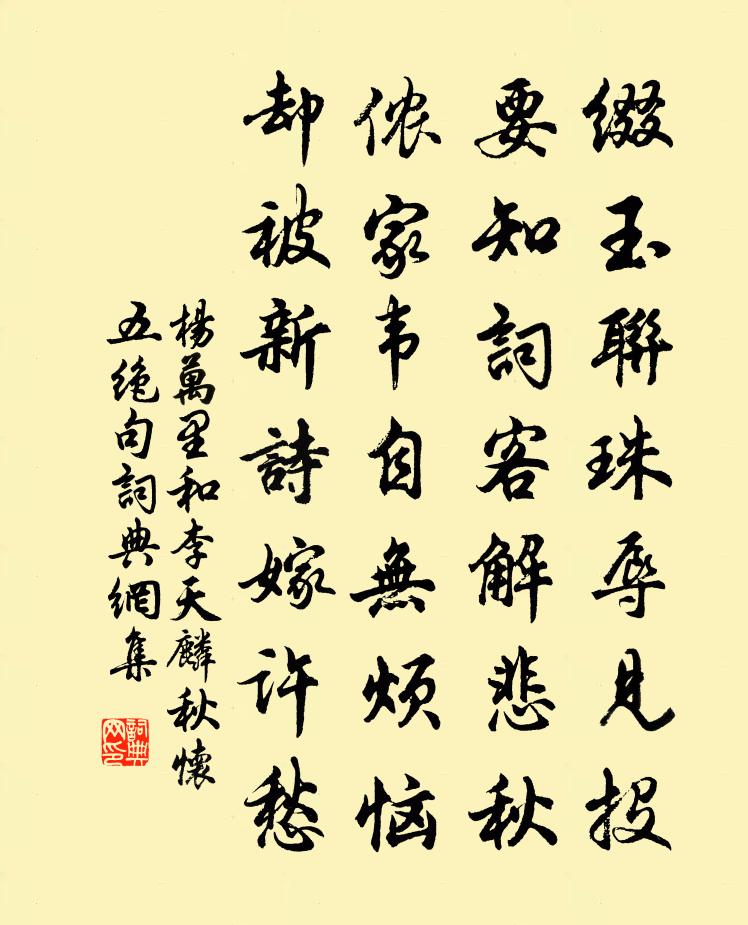 缀玉聯珠辱見投
要知詞客解悲秋
侬家韦自無烦恼
却被新詩嫁許愁
楊萬里和李天麟秋懷
五绝句詞典網集
詞典网印